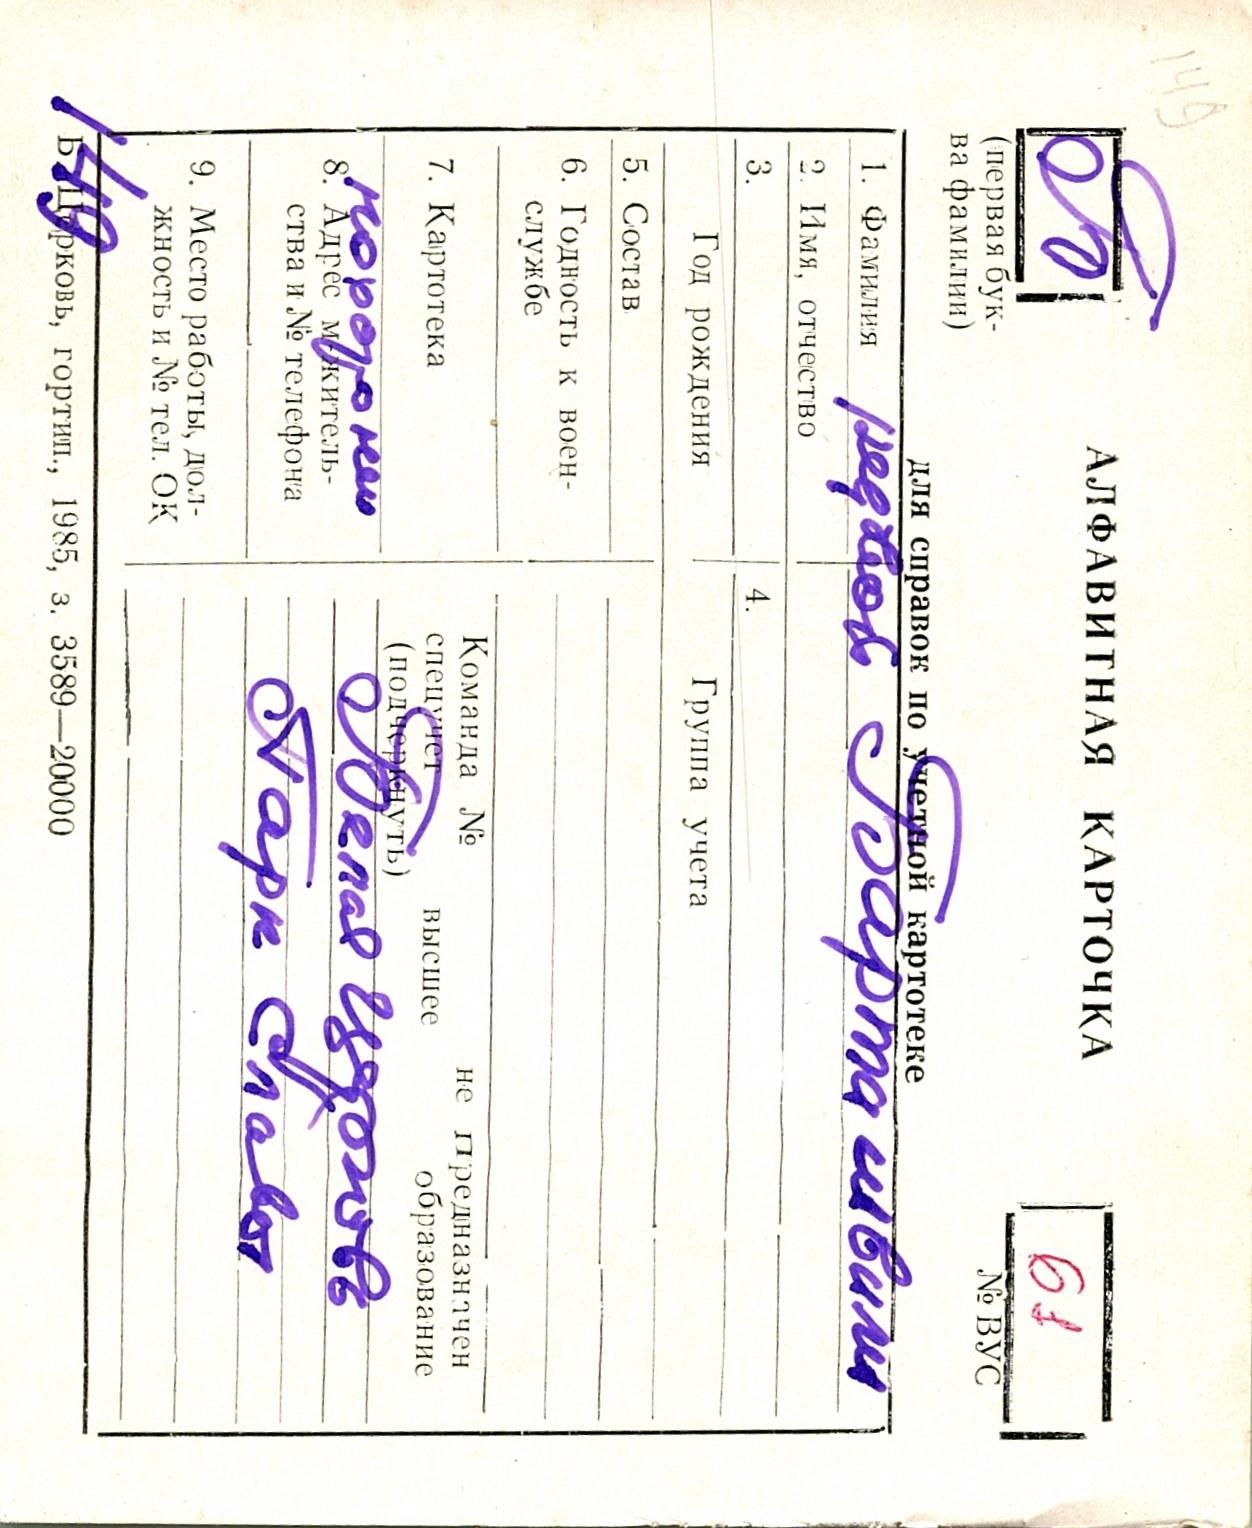 149
Б
(первая бук-
ва фамилии)
АЛФАВИТНАЯ КАРТОЧКА
для справок по учетной картотеке
61
№ ВУС
1. Фамилия
2. Имя, отчество
3. Год рождения
4. Группа учета
5. Состав
6. Годность к воен-
службе
7. Картотека
Команда № не предназначен
спецучет высшее образование
(подчеркнуть)
8. Адрес м-житель-
ства и № телефона
Белая Церковь
Парк Слава
9. Место работы, дол-
жность и № тел. ОК
149
Б. Церковь, гортип., 1985, з. 3589—20000